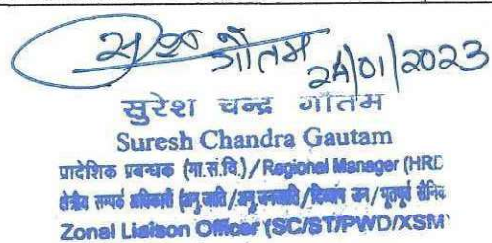 सुरेश गौतम 24/01/2023
सुरेश चन्द्र गौतम
Suresh Chandra Gautam
प्रादेशिक प्रबन्धक (मा.सं.वि.)/Regional Manager (HRD
क्षेत्रीय सम्पर्क अधिकारी (अनु.जाति/अनु.जनजाति/दिव्यांग जन/भूतपूर्व सैनिक
Zonal Liaison Officer (SC/ST/PWD/XSM)